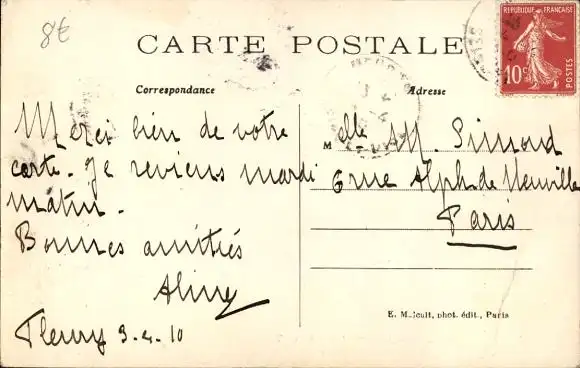 8€
CARTE POSTALE
RÉPUBLIQUE FRANÇAISE
10c
POSTES
Correspondance
Adresse
Merci bien de votre
carte. Je reviens mardi
matin.
Bonnes amitiés
Aliny
Fleury 3-4-10
Melle M. Simond
6 rue Alph. de Neuville
Paris
phot. édit., Paris